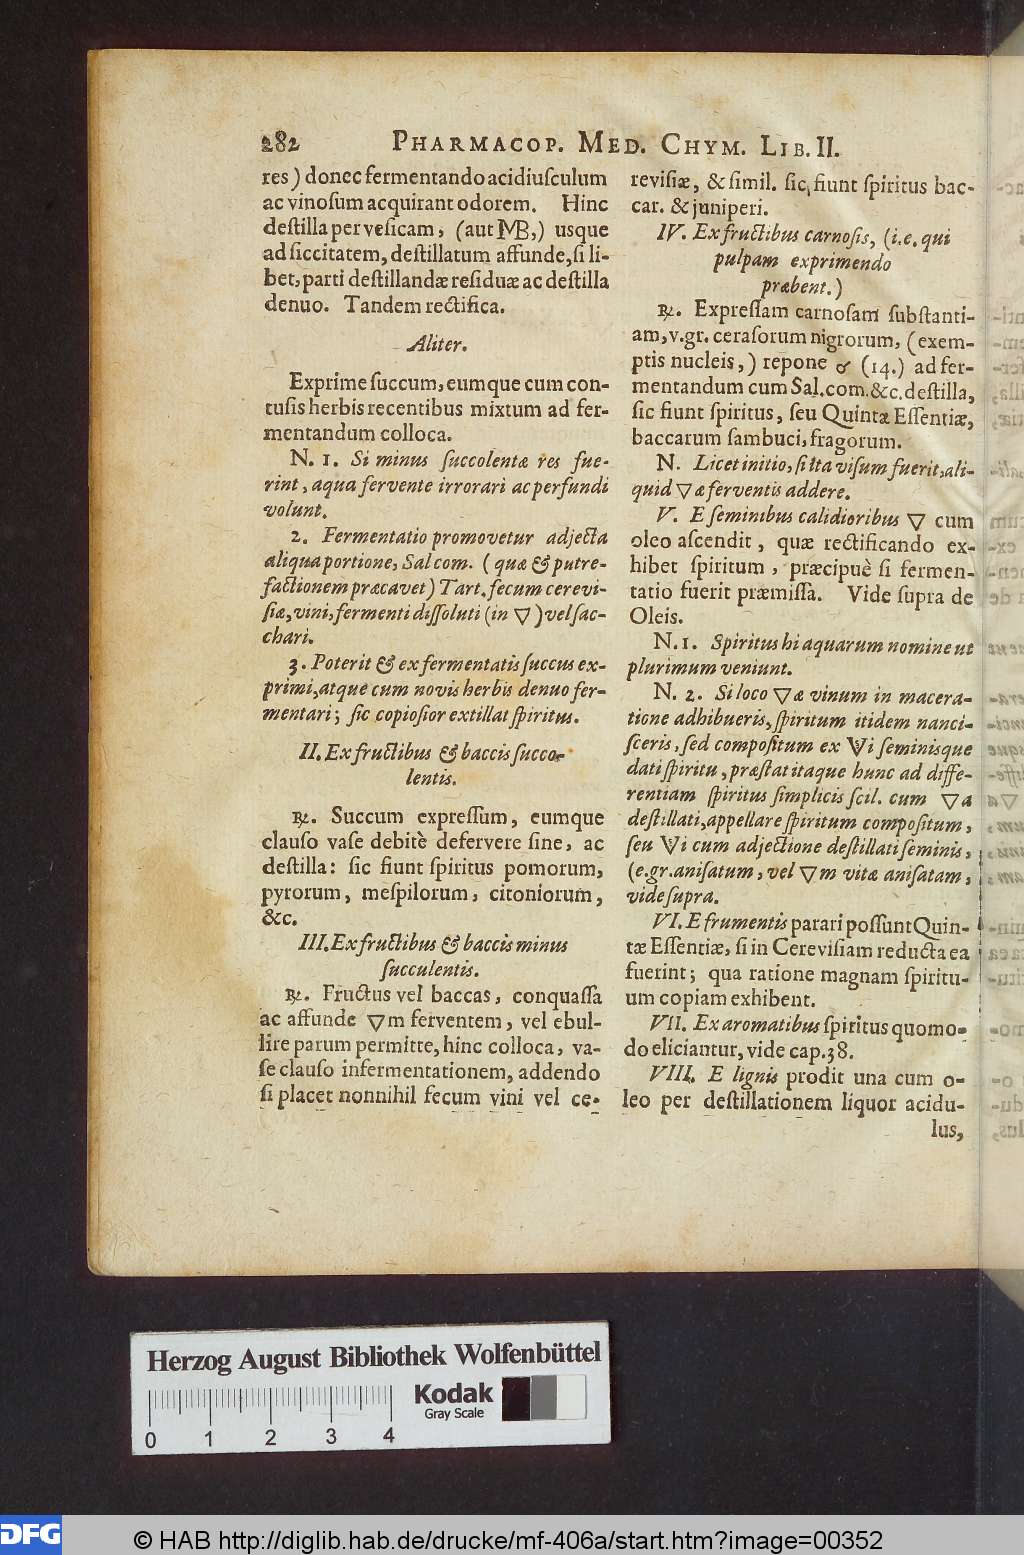 282 PHARMACOP. MED. CHYM. LIB. II.
res) donec fermentando acidiuſculum
ac vinoſum acquirant odorem. Hinc
deſtilla per veſicam, (aut MB,) usque
ad ſiccitatem, deſtillatum affunde, ſi li-
bet, parti deſtillandæ reſiduæ ac deſtilla
denuo. Tandem rectifica.
Aliter.
Exprime ſuccum, eumque cum con-
tuſis herbis recentibus mixtum ad fer-
mentandum colloca.
N. 1. Si minus ſuccolentæ res fue-
rint, aqua fervente irrorari ac perfundi
volunt.
2. Fermentatio promovetur adjecta
aliqua portione, Sal com. (quæ & putre-
factionem præcavet) Tart. fecum cerevi-
ſiæ, vini, fermenti diſſoluti (in ▽) vel ſac-
chari.
3. Poterit & ex fermentatis ſuccus ex-
primi, atque cum novis herbis denuo fer-
mentari; ſic copioſior extillat ſpiritus.
II. Ex fructibus & baccis ſucco-
lentis.
℞. Succum expreſſum, eumque
clauſo vaſe debitè defervere ſine, ac
deſtilla: ſic fiunt ſpiritus pomorum,
pyrorum, meſpilorum, citoniorum,
&c.
III. Ex fructibus & baccis minus
ſucculentis.
℞. Fructus vel baccas, conquaſſa
ac affunde ▽m ferventem, vel ebul-
lire parum permitte, hinc colloca, va-
ſe clauſo in fermentationem, addendo
ſi placet nonnihil fecum vini vel ce-
reviſiæ, & ſimil. ſic fiunt ſpiritus bac-
car. & juniperi.
IV. Ex fructibus carnoſis, (i.e. qui
pulpam exprimendo
præbent.)
℞. Expreſſam carnoſam ſubſtanti-
am, v. gr. ceraſorum nigrorum, (exem-
ptis nucleis,) repone ♂ (14.) ad fer-
mentandum cum Sal. com. &c. deſtilla,
ſic fiunt ſpiritus, ſeu Quintæ Eſſentiæ,
baccarum ſambuci, fragorum.
N. Licet initio, ſi ita viſum fuerit, ali-
quid ▽æ ferventis addere.
V. E ſeminibus calidioribus ▽ cum
oleo aſcendit, quæ rectificando ex-
hibet ſpiritum, præcipuè ſi fermen-
tatio fuerit præmiſſa. Vide ſupra de
Oleis.
N. 1. Spiritus hi aquarum nomine ut
plurimum veniunt.
N. 2. Si loco ▽æ vinum in macera-
tione adhibueris, ſpiritum itidem nanci-
ſceris, ſed compoſitum ex Vi ſeminisque
dati ſpiritu, præſtat itaque hunc ad diffe-
rentiam ſpiritus ſimplicis ſcil. cum ▽a
deſtillati, appellare ſpiritum compoſitum,
ſeu Vi cum adjectione deſtillati ſeminis,
(e. gr. aniſatum, vel ▽m vitæ aniſatam,
vide ſupra.
VI. E frumentis parari poſſunt Quin-
tæ Eſſentiæ, ſi in Cereviſiam reducta ea
fuerint; qua ratione magnam ſpiritu-
um copiam exhibent.
VII. Ex aromatibus ſpiritus quomo-
do eliciantur, vide cap. 38.
VIII. E lignis prodit una cum o-
leo per deſtillationem liquor acidu-
lus,
Herzog August Bibliothek Wolfenbüttel
0 1 2 3 4
Kodak
Gray Scale
DFG
© HAB http://diglib.hab.de/drucke/mf-406a/start.htm?image=00352